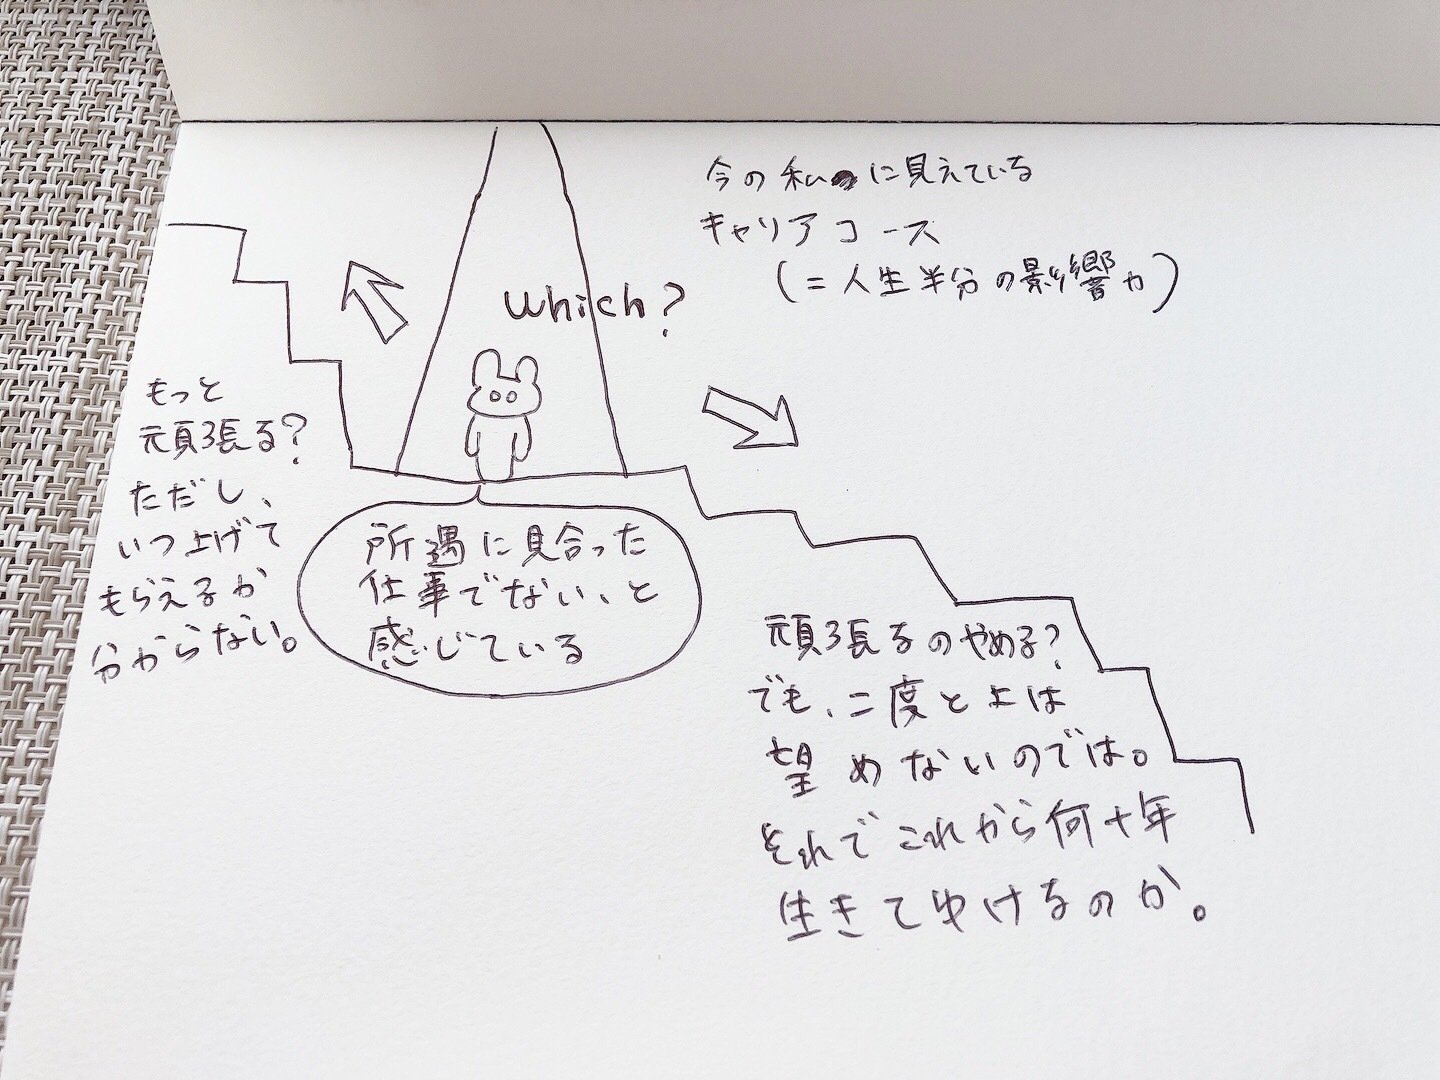 今の私に見えている
キャリアコース
(=人生半分の影響力)
which?
もっと
頑張る?
ただし、
いつ上げて
もらえるか
分からない。
所遇に見合った
仕事でない、と
感じている
頑張るのやめる?
でも、二度と上は
望めないのでは。
それでこれから何十年
生きてゆけるのか。